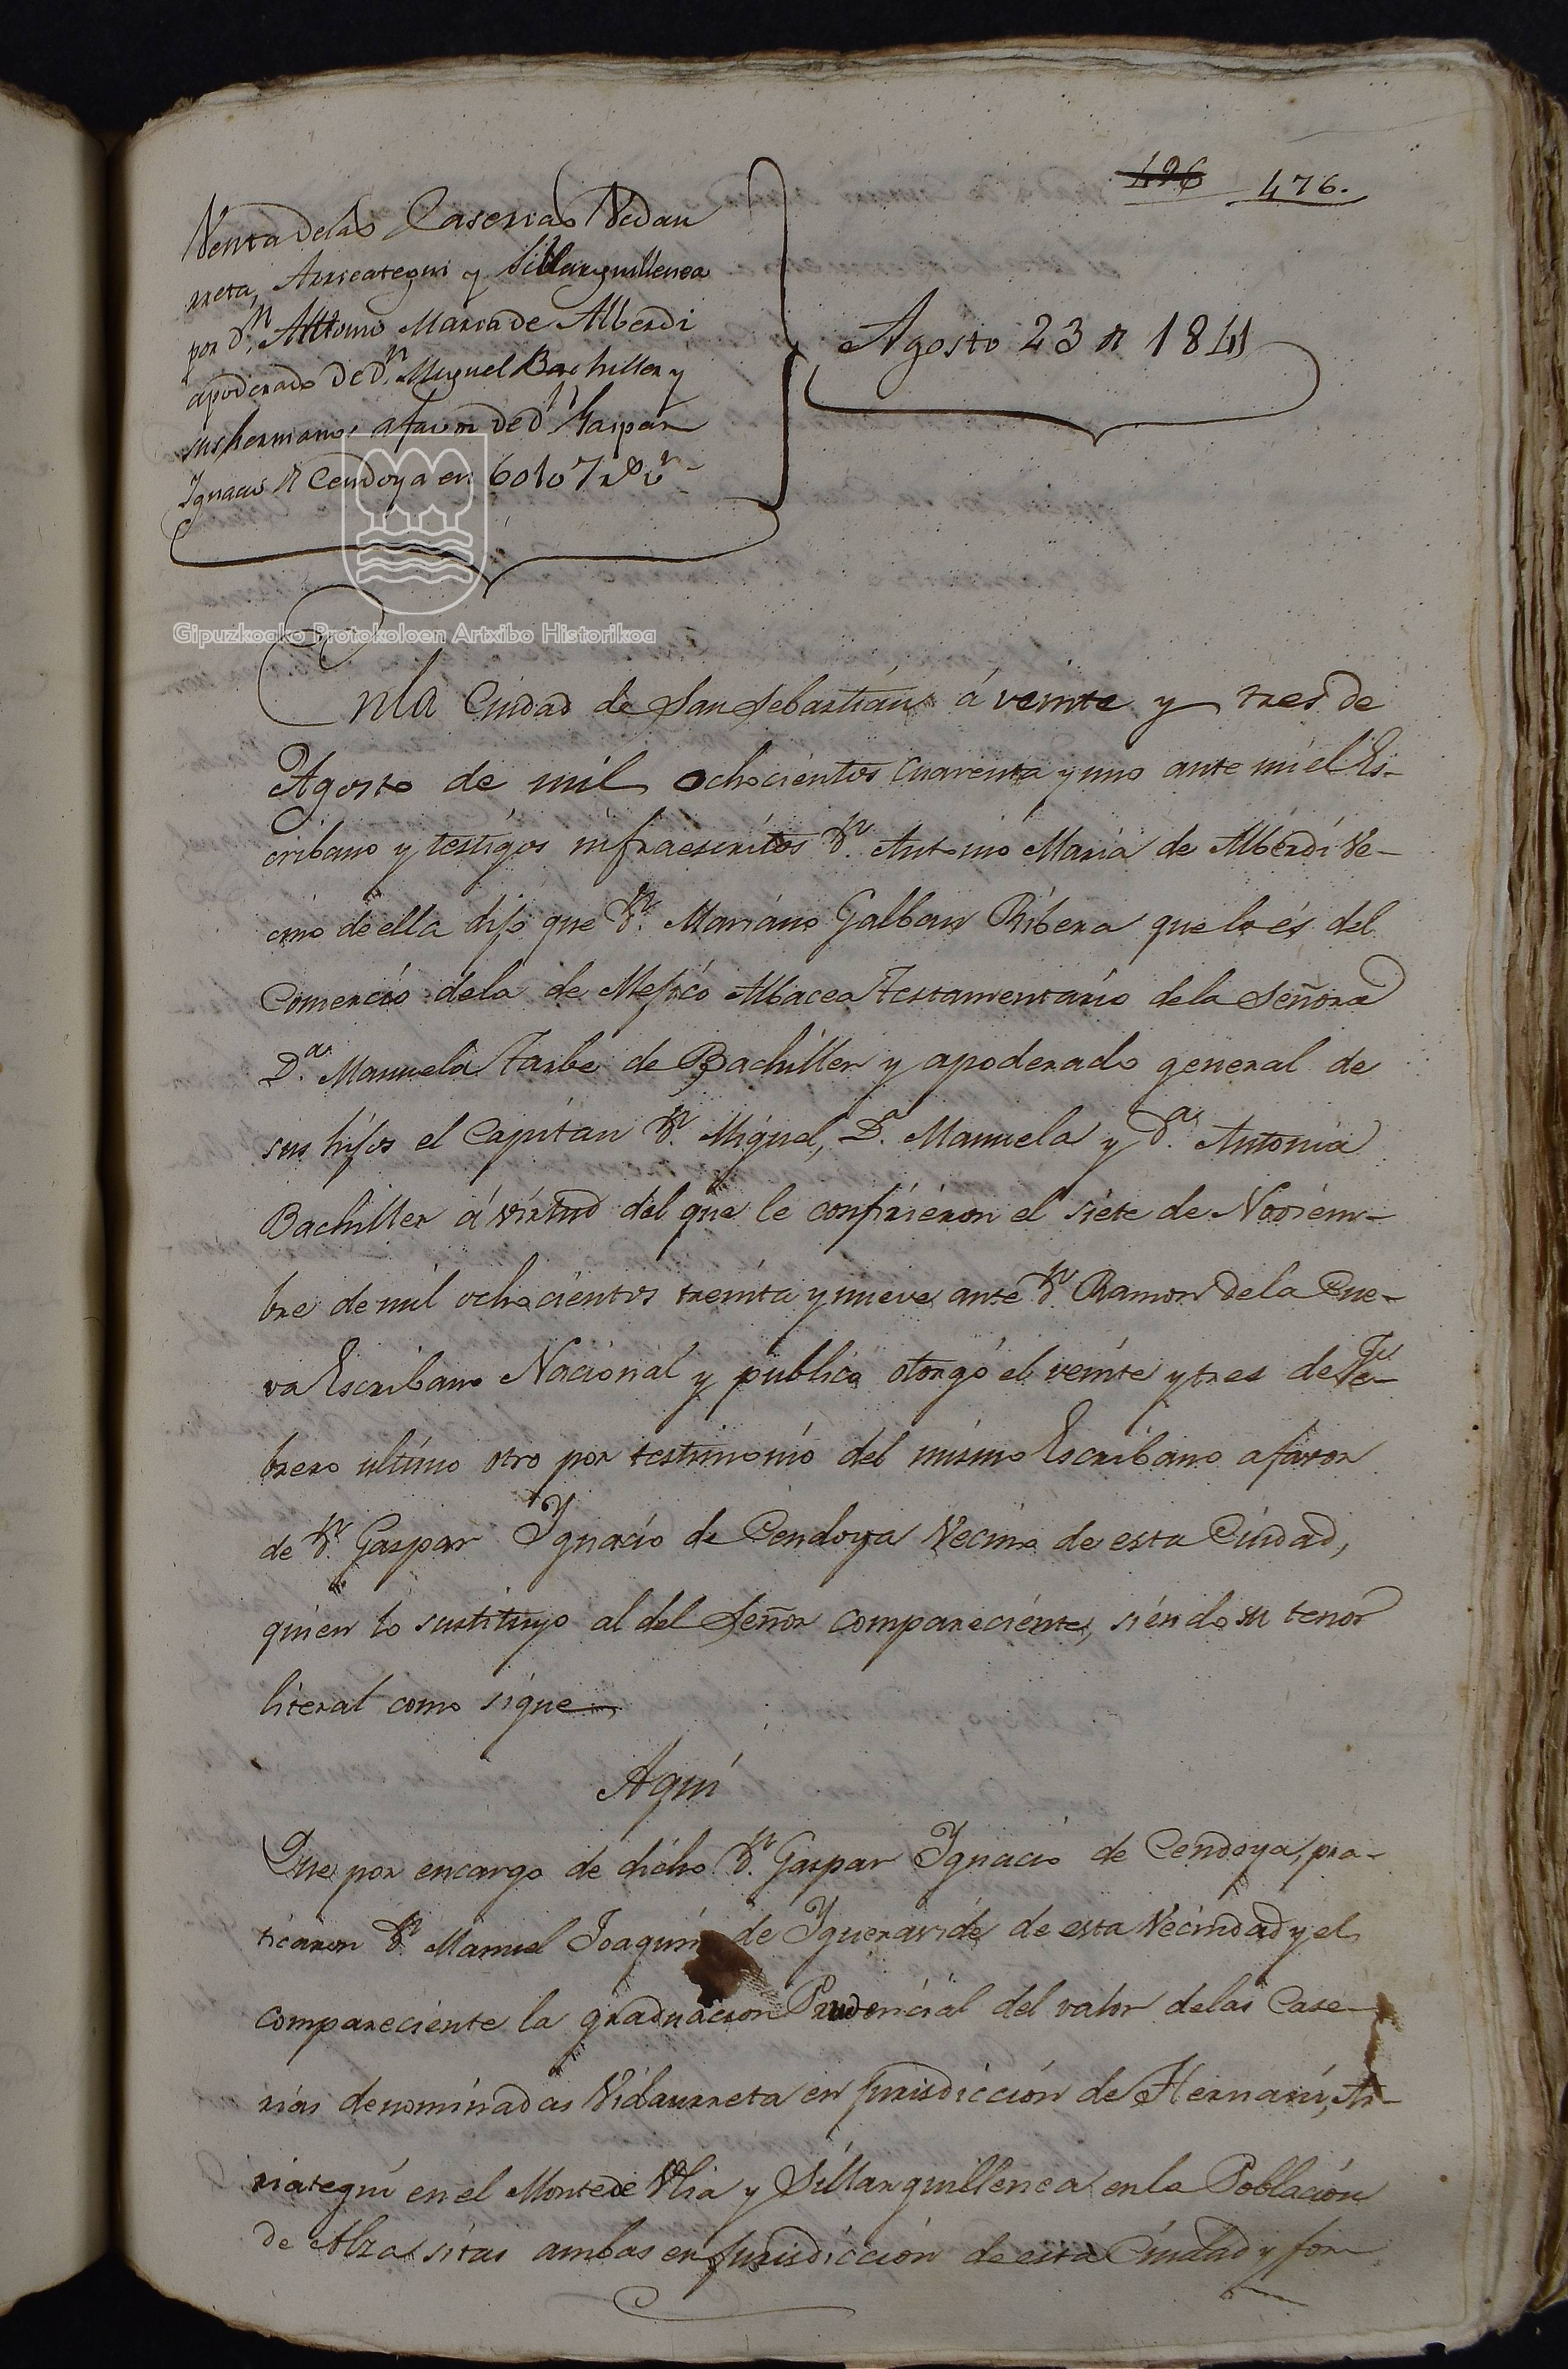 426 476.
Venta delas Caserias Vidau
rreta, Arrieategui y Sillarguillenea
por Dn. Antonio Maria de Alberdi
apoderado de Dn. Miguel Bachiller y
sus hermanos afavor de Dn. Gaspar
Ignacio de Cendoya en 60107 rs vn
Agosto 23 de 1841
Gipuzkoako Protokoloen Artxibo Historikoa
Enla Ciudad de San Sebastián á veinte y tres de
Agosto de mil ochocientos cuarenta y uno ante mi el Es-
cribano y testigos infraescritos Dn. Antonio Maria de Alberdi Ve-
cino de ella dijo que Dn. Mariano Galban Ribera que lo és del
Comercio dela de Mejico Albacea Testamentario dela Señora
Da. Manuela Tarbe de Bachiller y apoderado general de
sus hijos el Capitan Dn. Miguel, Da. Manuela y Da. Antonia
Bachiller á virtud del que le confirieron el siete de Noviem-
bre de mil ochocientos treinta y nueve ante Dn. Ramon dela Cue-
va Escribano Nacional y publico otorgó el veinte y tres de Fe-
brero ultimo otro por testimonio del mismo Escribano afavor
de Dn. Gaspar Ignacio de Cendoya Vecino de esta Ciudad,
quien lo sustituyo al del Señor compareciente, siéndo su tenor
literal como sigue
Aqui
Que por encargo de dicho Dn. Gaspar Ignacio de Cendoya, pra-
ticaron Dn. Manuel Joaquin de Ygueravide de esta Vecindad y el
compareciente la graduacion Prudencial del valor delas Case-
rias denominadas Vidaurreta en jurisdicción de Hernani, Ar-
riategui en el Monte de Ulia y Sillarguillenea enla Población
de Alza sitas ambas en jurisdicción de esta Ciudad y for